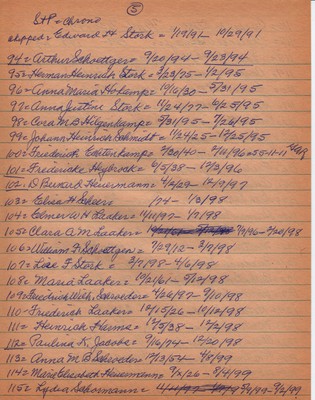 5
St P = chrono
skipped = Edward H Stork = 1/19/91 - 10/29/91
94 = Arthur Schoettger = 9/20/94 - 9/23/94
95 = Herman Heinrich Stork = 2/23/25 - 1/2/95
96 = Anna Maria Hokamp = 10/16/30 - 5/31/95
97 = Anna Justine Stork = 11/24/77 - 6/25/95
98 = Cora M B Hilgenkamp = 3/31/95 - 7/26/95
99 = Johann Heinrich Schmidt = 1/24/25 - 10/25/95
100 = Frederick 2/20/40 - 2/10/96 = 55-11-11
101 = Fredericke Heybrock = 6/5/38 - 12/3/96
102 = D Bernard Heuermann = 4/4/29 - 12/19/97
103 = Elise H Scheer 1/74 - 1/3/98
104 = Elmer W H Laaker = 11/10/97 - 1/9/98
105 = Clara A. M. Laaker = 7/9/96 - 2/20/98
106 = William F. Schoettger = 7/27/12 - 3/9/98
107 = Lože F. Stork = 3/7/98 - 4/6/98
108 = Maria Laaker = 10/21/61 - 5/12/98
109 = Friedrich Wilh. Schroeder = 2/24/27 - 9/10/98
110 - Friederich Laaker = 12/15/26 - 10/12/98
111 = Heinrich Heine = 12/5/38 - 12/2/98
112 = Pauline K. Jacobs = 7/16/94 - 12/20/98
113 = Anna M B Schroeder = 12/13/54 - 4/8/99
114 = Marie Elisabeth Heuermann = 9/2/26 - 8/4/99
115 = Lydia 5/4/99 - 9/2/99